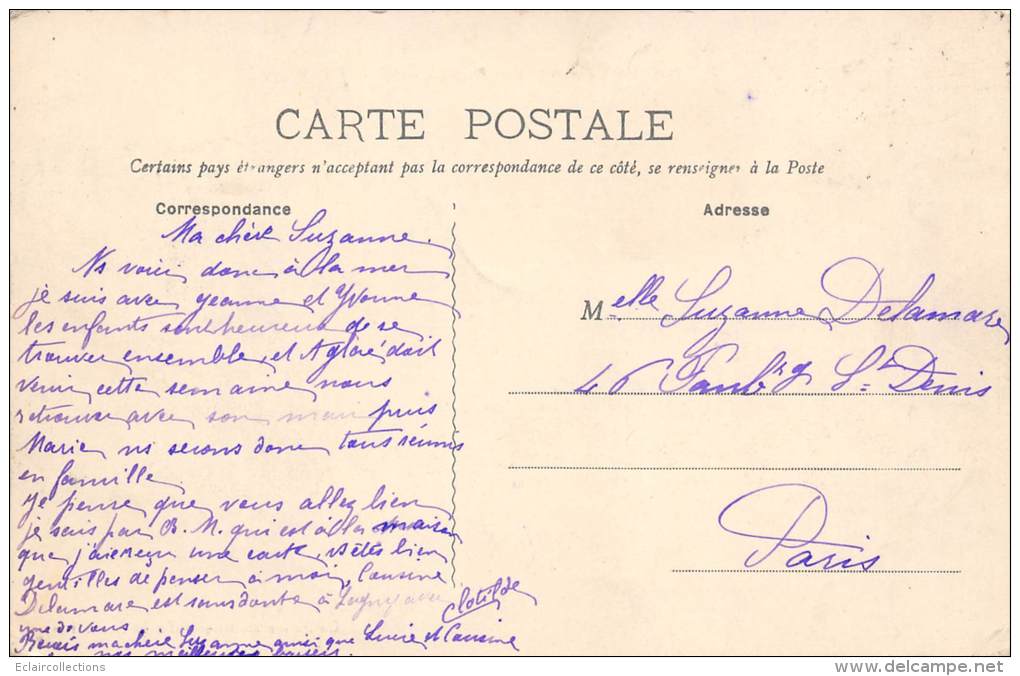 CARTE POSTALE
Certains pays étrangers n'acceptant pas la correspondance de ce côté, se renseigner à la Poste
Correspondance
Ma chère Suzanne.
Ns voici donc à la mer
je suis avec Jeanne et Yvonne
les enfants sont heureux de se
trouver ensemble, et Aglaé doit
venir cette semaine nous
retrouver avec son mari puis
Marie ns serons donc tous réunis
en famille.
Je pense que vous allez bien
je sais par B. M. qui est à la maison
que j'ai reçu une carte, vs êtes bien
gentilles de penser à moi, Cousine
Delamare est sans doute à avec
une de vous
Clotilde
ma chère Suzanne ainsi que et Cousine
nos meilleurs baisers.
Adresse
Melle Suzanne Delamare
46 Faubrg St Denis
Paris
Eclaircollections
delcampe.net